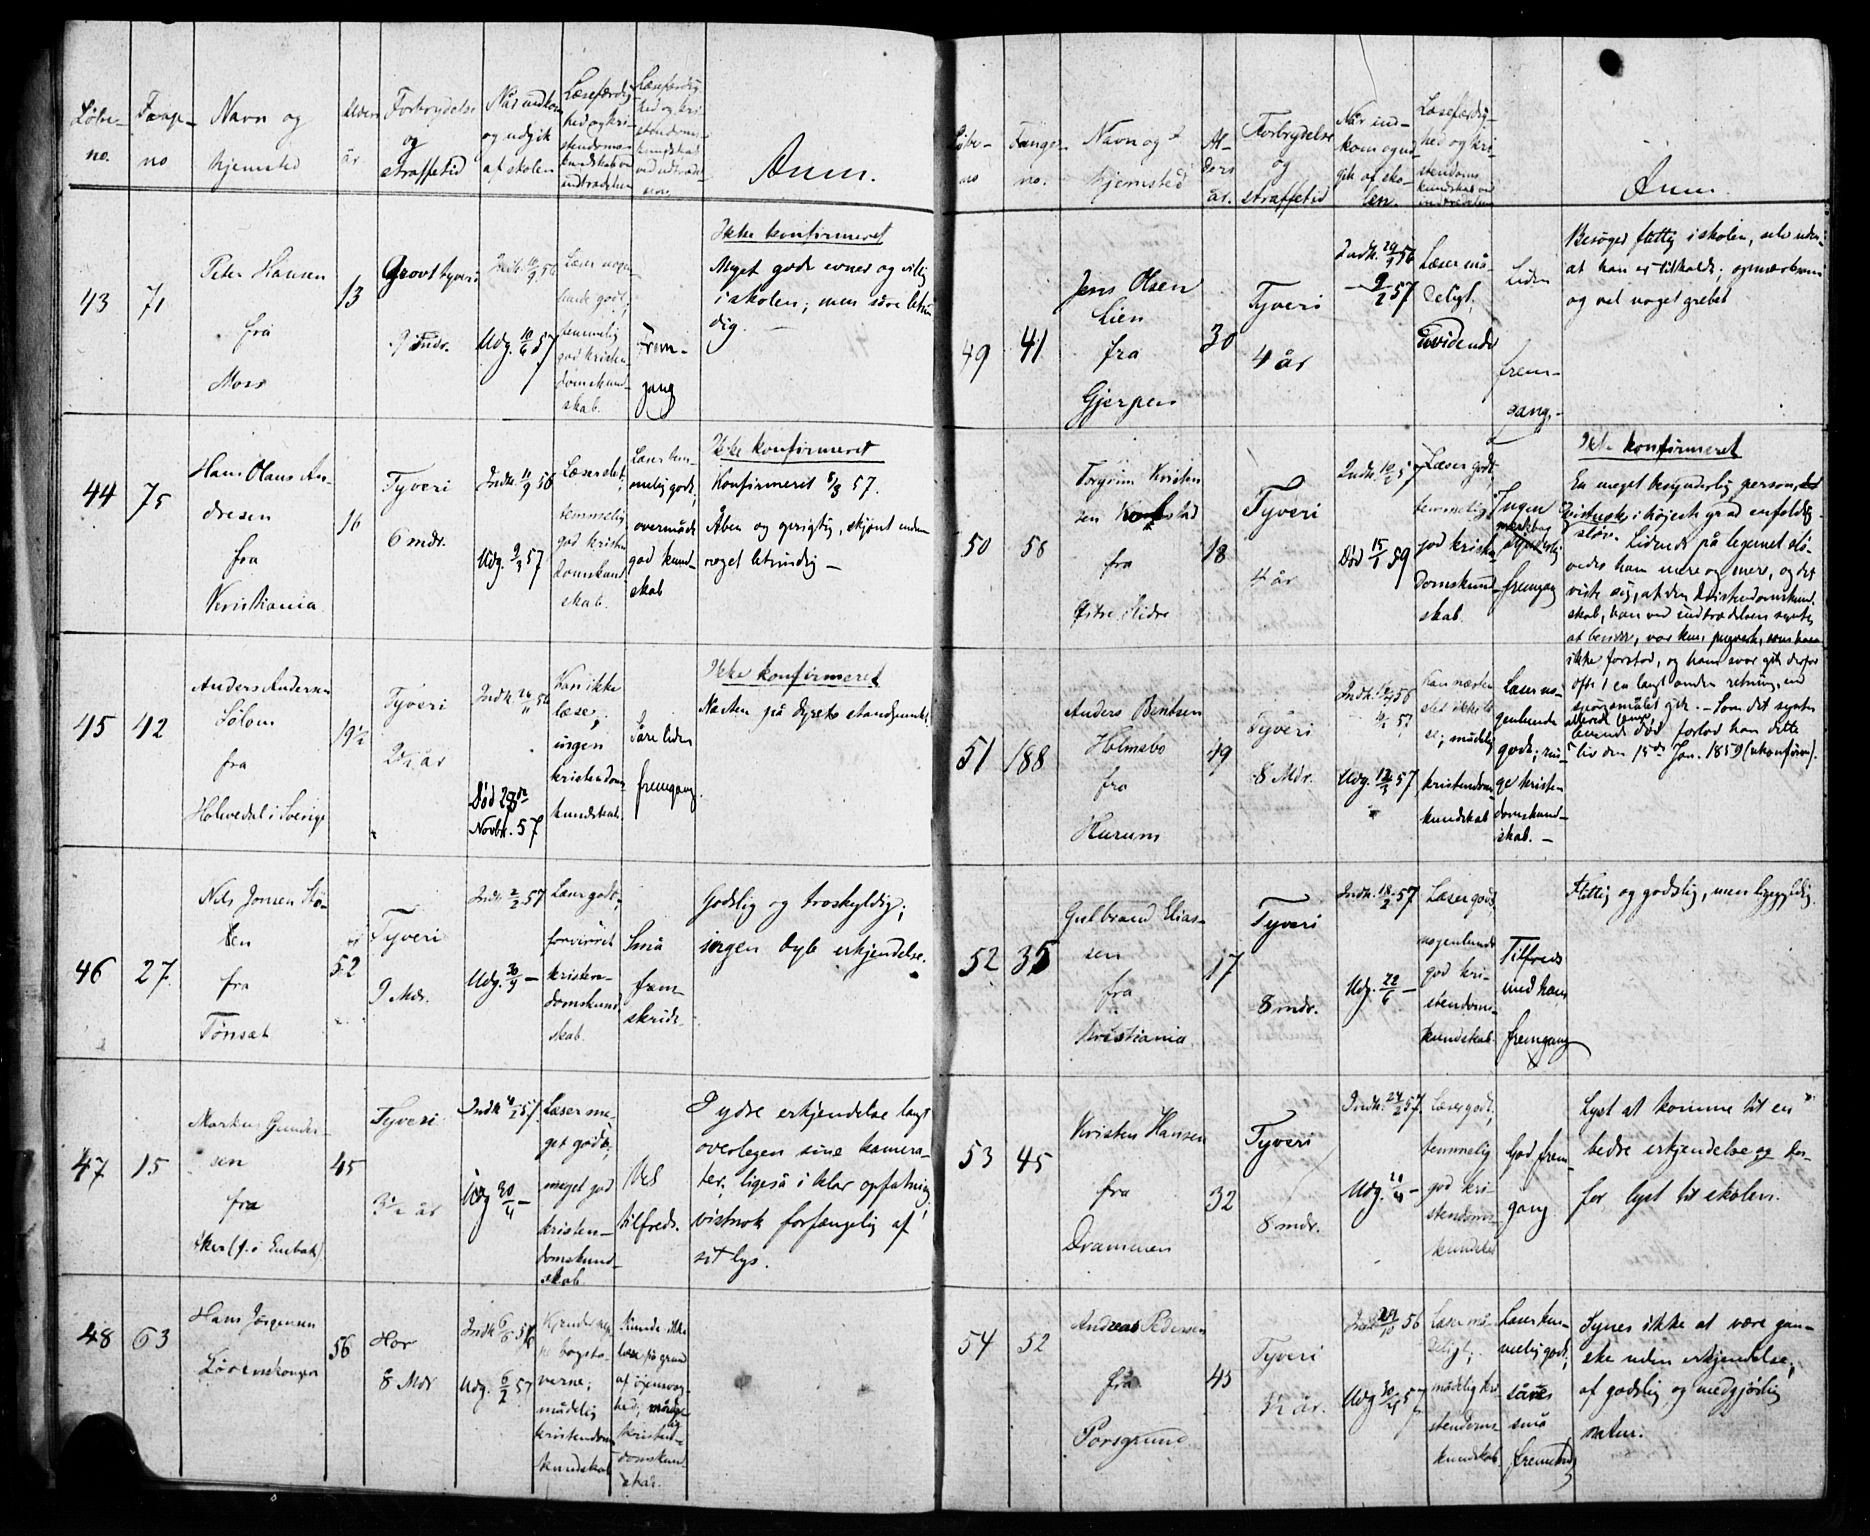 Løbe-
no.
Fange-
no
Navn og
hjemsted
Alders
år.
Forbrydelse
og
straffetid
Når indkom
og udgik
af skolen
Læsefærdig-
hed og kri-
stendoms-
kundskab ved
indtrædelsen
Læsefærdig-
hed og kri-
stendoms-
kundskab
ved udtrædel-
sen.
Anm.
43
71
Peter Hansen
fra
Moss
13
Grovt tyveri
9 Mdr.
Udg. 10/6 57
Læser nogen-
lunde godt,
temmelig
god kristen-
domskund-
skab.
Frem-
gang
Ikke konfirmeret
Meget gode evner og vilje
i skolen; men såre letsin-
dig. —
44
75
Hans Olaus An-
dresen
fra
Kristiania
16
Tyveri
6 mdr.
Indk. 11/9 56
Udg. 9/3 57
Læser slet,
temmelig
god kristen-
domskund-
skab.
Læser tem-
melig godt,
overmåde
god kund-
skab
Ikke konfirmeret
Konfirmeret 8/3 57.
Åben og oprigtig, skjønt enden
noget letsindig —
45
42
Anders Andersen
Solom
fra
Holmedal i Sverige
19½
Tyveri
2½ år
Indk 24/11 56
Død 28de
Novbr. 57
Kan ikke
læse;
ingen
kristendoms-
kundskab.
Såre liden
fremgang.
Ikke konfirmeret
Næsten på dyrets standpunkt.
46
27.
Nils Jonsen Stø-
en
fra
Tønset
52
Tyveri
9 Mdr.
Indk 2/2 57
Udg. 30/9 —
Læser godt;
forvirret
kristen-
domskund-
skab.
Små
frem-
skridt
Godslig og troskyldig;
ingen dyb erkjendelse.
47
15
Morten Gunder-
sen
fra
45
Tyveri
3½ år
Indk 4/2 57.
Udg 30/4 —
Læser me-
get godt;
meget god
kristen-
domskund-
skab
Vel
tilfreds.
I ydre erkjendelse langt
overlegen sine kamera-
ter; ligeså i klar opfatning,
vistnok forfængelig af
sit lys.
48
63
Hans Jørgensen
Lørenskougen
56
Hor
8 Mdr
Indk 6/8 56
Udg. 6/2 57
Kjender nep-
pe bogsta-
verne;
mådelig
kristendoms-
kundskab
Kunde ikke
læse på grund
af øjensvag-
hed; mådelig
kristen-
domskund-
skab.
Løbe-
no
Fange-
no.
Navn og
hjemsted
Al-
ders
år.
Forbrydelse
og
straffetid
Når ind-
kom og ud-
gik af sko-
len.
Læsefærdig-
hed og kri-
stendoms-
kundskab ved
indtrædelsen
Anm.
49
41
Jens Olsen
Lien
fra
Gjerpen
30
Tyveri
4 år
Indk. 24/9 56
— 9/2 57
Læser må-
deligt,
uvidende
Liden
frem-
gang.
Besøger flittig i skolen, selv uden
at han er tilholdt; opmærksom
og vel noget grebet
50
58
Torgrim Kristen-
sen
fra
Østre Slidre
18
Tyveri
4 år
Indk. 10/2 57
Død 15/1 59
Læser godt,
temmelig
god kristen-
domskund-
skab.
Ingen
synderlig
fremgang
Ikke konfirmeret
En meget besynderlig person,
vistnok i højeste grad enfoldig.
sløv. Lidende på legemet slø-
vedes han mere og mere, og det
viste sig, at den kristendomskund-
skab, han ved indtrædelsen syntes
at besidde, var kun ramseverk, som han
ikke forstod, og hans svar gik derfor
ofte i en langt anden retning, end
spørgsmålet gik. — Som det syntes
allerede længe
levende død forlod han dette
liv den 15de Jan. 1859 (ukonfirm).
51
188
Anders Bentsen
Holmsbo
fra
Hurum
49
Tyveri
8 Mdr.
Udg. 12/3 57
Kan næsten
slet ikke læ-
se; mådelig
kristendoms-
kundskab
Læser no-
genlunde
godt; rin-
ge kristen-
domskund-
skab. —
52
35
Gulbrand Elias-
sen
fra
Kristiania
17
Tyveri
8 mdr.
Indk. 18/2 57
Udg. 22/6 —
Læser godt,
nogenlunde
god kri-
stendoms-
kundskab.
Tilfreds
med hans
fremgang
Flittig og godslig, men ligegyldig.
53
45
Kristen Hansen
fra
Drammen
32
Tyveri
8 mdr.
Indk. 24/2 57.
Læser godt,
temmelig
god kri-
stendoms-
kundskab
God frem-
gang
Lyst at komme til en
bedre erkjendelse og der-
for lyst til skolen.
54
52
Andreas Pedersen
fra
Porsgrund
43
Tyveri
½ år.
Indk 29/10 56
Udg 30/4 57
Læser må-
deligt;
mådelig kri-
stendoms-
kundskab.
Læser tem-
melig godt;
såre
små
fremskridt
Synes ikke at være gan-
ske uden erkjendelse;
af godslig og medgjørlig
natur.